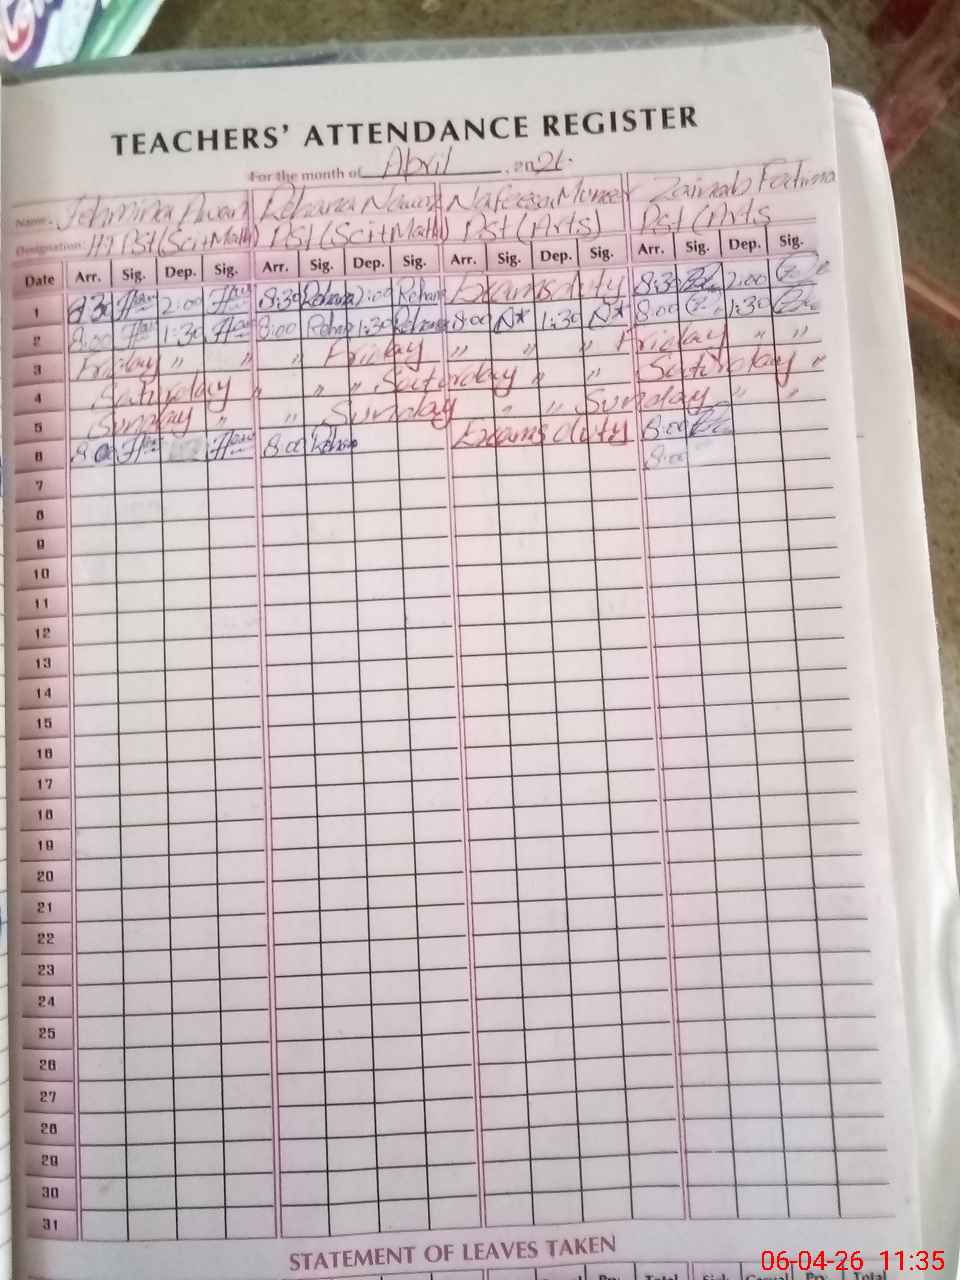 TEACHERS' ATTENDANCE REGISTER
For the month of April, 2026.
Name. Tehmina Awan Rehana Nawaz Nafeesa Muneer Zainab Fatima
Designation: HT PST (Sci+Math) PST (Sci+Math) PST (Arts) PST (Arts
Date Arr. Sig. Dep. Sig. Arr. Sig. Dep. Sig. Arr. Sig. Dep. Sig. Arr. Sig. Dep. Sig.
1 8:30 2:00 8:30 Rehana 2:00 Rehana Exams duty 8:30 2:00
2 8:00 1:30 8:00 Rehana 1:30 Rehana 8:00 1:30 8:00 1:30
3 Friday " " " Friday " " " Friday " "
4 Saturday " " " Saturday " " Saturday "
5 Sunday " " Sunday " " Sunday " "
6 8:00 8:00 Rehana Exams duty 8:00
8:00
7
8
9
10
11
12
13
14
15
16
17
18
19
20
21
22
23
24
25
26
27
28
29
30
31
STATEMENT OF LEAVES TAKEN
Total Sick Casual Total
06-04-26 11:35